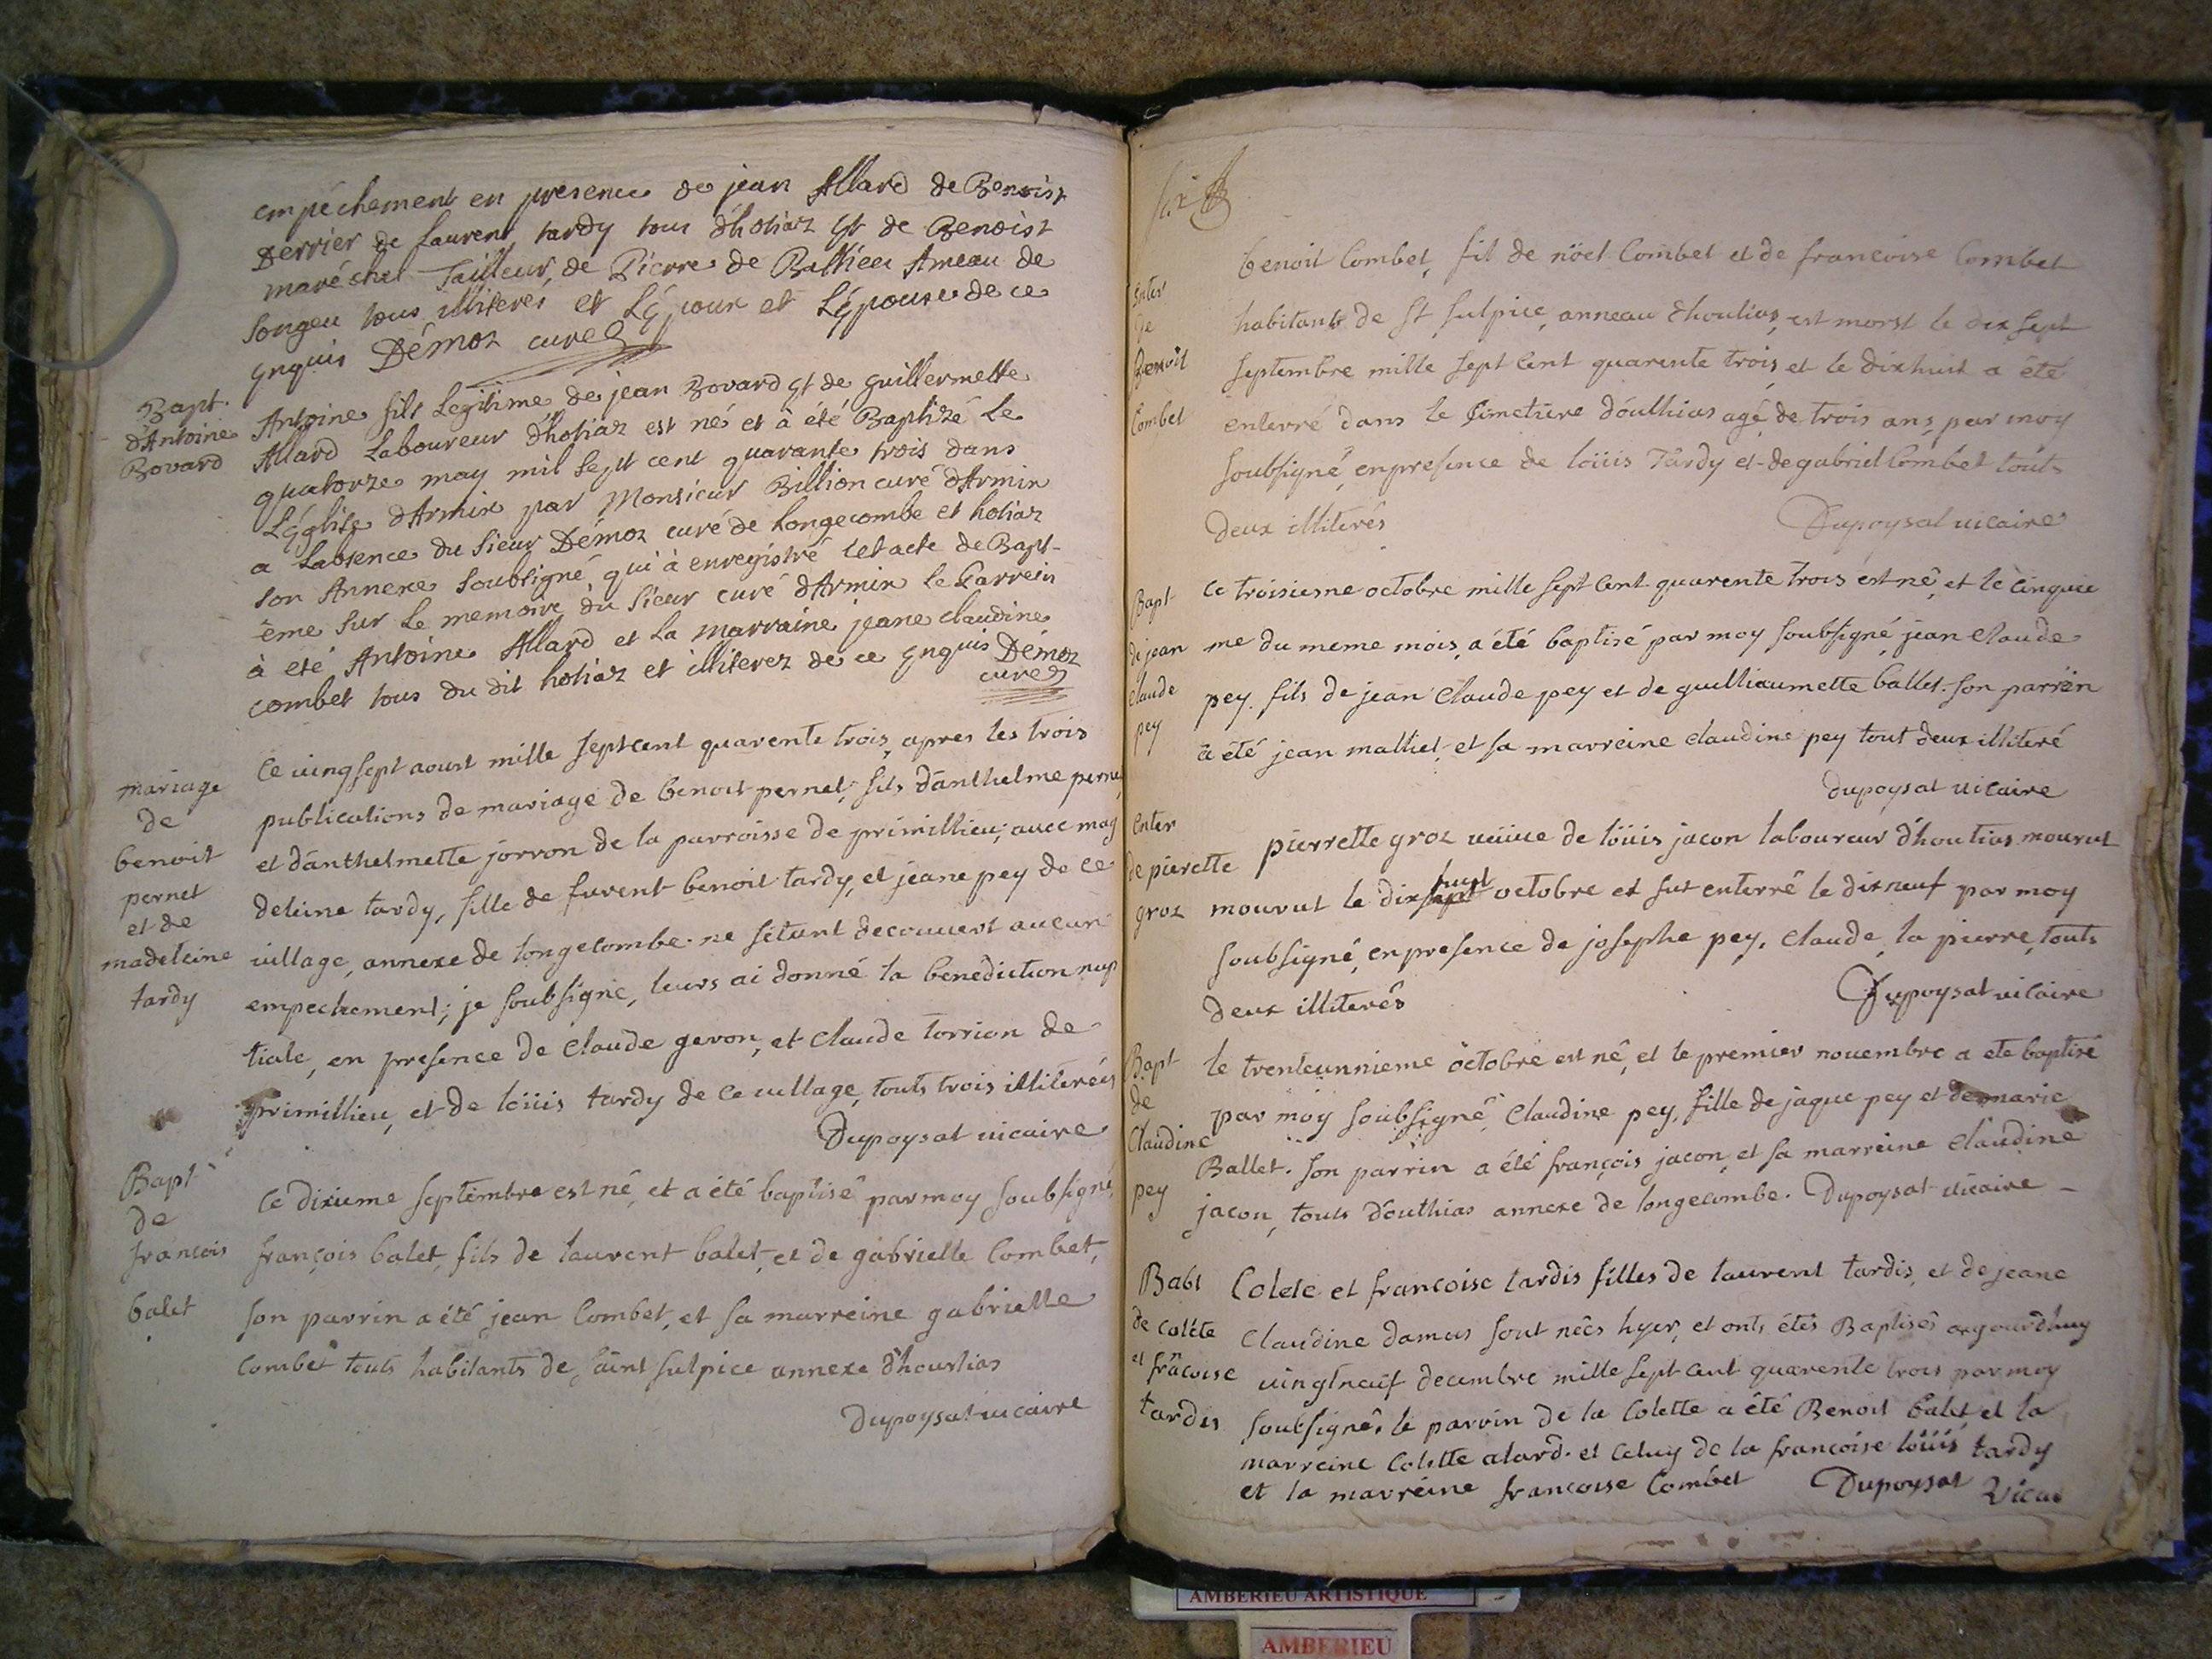 empéchement en presence de jean Allard de Benoist
Perrier de Laurent tardy tous d'hotiaz Et de Benoist
maréchal Tailleur, de Pierre de Bathieu Ameau de
Songeu tous illiterés et L'Epoux et L'Epouse de ce
Enquis Démoz curé
Bapt.
d'Antoine
Bovard
Antoine fils Legitime de jean Bovard Et de guillermette
Allard Laboureur d'hotiaz est né et à été Baptizé Le
quatorze may mil sept cent quarante trois dans
L'Eglise d'Armix par Monsieur Billion curé d'Armix
a Labsence du sieur Démoz curé de Longecombe et hotiaz
son Annexe soubsigné qui à enregistré cet acte de Bapt-
ême sur Le memoire du sieur curé d'Armix le Parrein
à eté Antoine Allard et La marraine jeane claudine
combet tous du dit hotiaz et illiterez de ce Enquis Démoz
curé
mariage
de
benoit
pernet
et de
madeleine
tardy
Ce vingsept aoust mille septcent quarente trois, apres les trois
publications de mariage de benoit pernet, fils d'anthelme pernet
et d'anthelmette jorron de la parroisse de primillieu; avec mag
deleine tardy, fille de furent benoit tardy, et jeane pey de ce
village, annexe de longecombe. ne s'etant decouvert aucun
empechement; je soubsigné, leurs ai donné la benediction nup
tiale, en presence de Claude gevon, et Claude torrion de
primillieu, et de loüis tardy de ce village, touts trois illiterées
Dupoysat vicaire
Bapt
de
françois
balet
Ce dixieme septembre est né, et a été baptisé par moy soubsigné,
françois balet, fils de laurent balet, et de gabrielle Combet,
son parrin a été jean Combet, et sa marreine gabrielle
Combet touts habitants de saint sulpice annexe d'houtias
Dupoysat vicaire
six
Enter
de
Benoit
Combet
benoit Combet, fil de nöel Combet et de francoise Combet
habitants de St sulpice, anneau d'houtias, est morst le dix sept
septembre mille sept cent quarente trois, et le dixhuit a été
enterré dans le cimetiere d'outhias agé de trois ans, par moy
soubsigné, en presence de loüis Tardy et de gabriel Combet touts
deux illiterés
Dupoysat vicaire
Bapt
de jean
claude
pey
Ce troisiesme octobre mille sept cent quarente trois est né, et le cinquie
me du meme mois, a été baptisé par moy soubsigné, jean Claude
pey. fils de jean Claude pey et de guilliaumette ballet. son parrin
a été jean mathet, et sa marreine claudine pey tout deux illiteré
dupoysat vicaire
Enter
de pierette
groz
pierrette groz veüve de loüis jacon laboureur d'houtias mourut
mourut le dixsept huit octobre et fut enterré le dixneuf par moy
soubsigné, en presence de josephe pey, Claude la pierre, touts
deux illiterés
Dupoysat vicaire
Bapt
de
Claudine
pey
le trenteunnieme octobre est né, et le premier novembre a ete baptisé
par moy soubsigné, Claudine pey, fille de jaque pey et de marie
Ballet. son parrin a été françois jacon, et sa marreine claudine
jacon, touts d'outhias annexe de longecombe. Dupoysat vicaire
Babt
de coléte
et frãcoise
tardis
Colete et francoise tardis filles de laurent tardis, et de jeane
Claudine damas sont nées hyer, et onts étés Baptisés aujourdhuy
vingtneuf decembre mille sept cent quarente trois par moy
soubsigné. le parrin de la Colette a été Benoit balet, et la
marreine Colette alard. et celuy de la francoise loüis tardy
et la marreine francoise Combet Dupoysat Vicai
AMBERIEU ARTISTIQUE
AMBERIEU